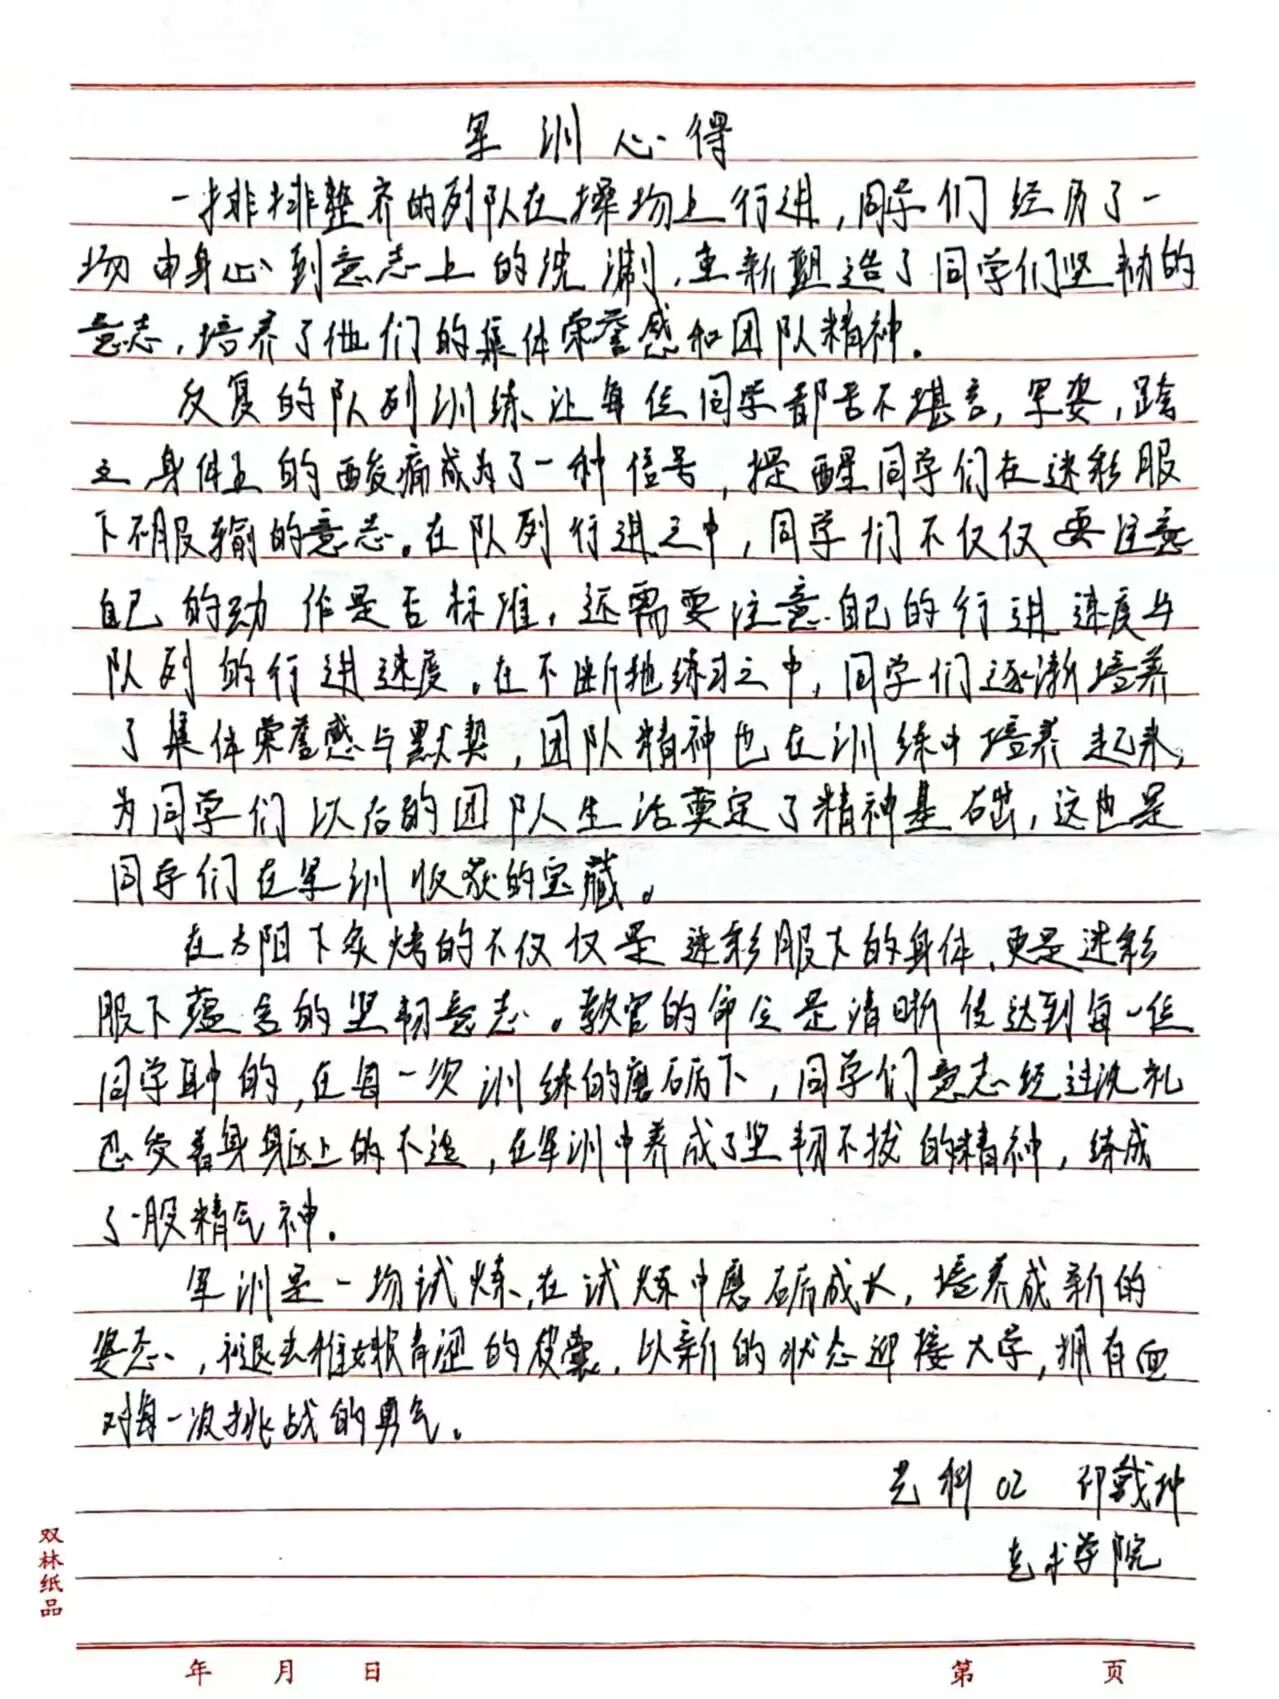 军训心得
一排排整齐的列队在操场上行进,同学们经历了一
场由身心到意志上的洗涮,重新塑造了同学们坚韧的
意志,培养了他们的集体荣誉感和团队精神。
反复的队列训练让每位同学都苦不堪言,军姿,跨
立身体上的酸痛成为了一种信号,提醒同学们在迷彩服
下不服输的意志。在队列行进之中,同学们不仅仅要注意
自己的动作是否标准,还需要注意自己的行进速度与
队列的行进速度。在不断地练习之中,同学们逐渐培养
了集体荣誉感与默契,团队精神也在训练中培养起来,
为同学们以后的团队生活奠定了精神基础,这也是
同学们在军训收获的宝藏。
在太阳下炙烤的不仅仅是迷彩服下的身体,更是迷彩
服下蕴含的坚韧意志。教官的命令是清晰传达到每一位
同学耳中的,在每一次训练的磨砺下,同学们意志经过洗礼
忍受着身躯上的不适,在军训中养成了坚韧不拔的精神,练成
了一股精气神。
军训是一场试炼,在试炼中磨砺成长,培养成新的
姿态,褪去稚嫩青涩的皮囊,以新的状态迎接大学,拥有面
对每一次挑战的勇气。
艺科02
艺术学院
双林纸品
年 月 日 第 页